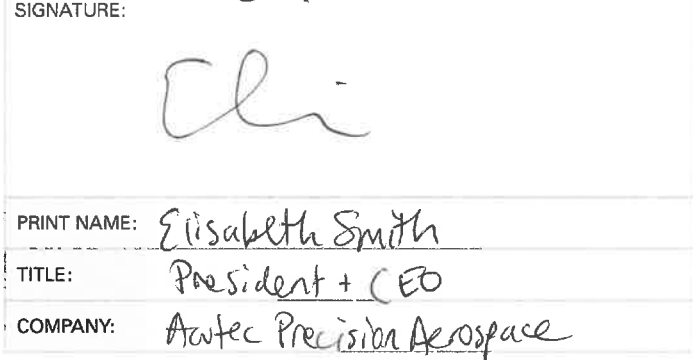 SIGNATURE:
PRINT NAME: Elisabeth Smith
TITLE: President + CEO
COMPANY: Acutec Precision Aerospace